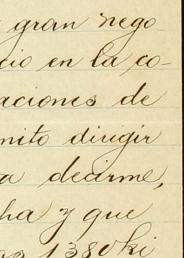 gran nego
cio en la co-
aciones de
mito dirigir
a decirme,
ha y que
as 1380 ki